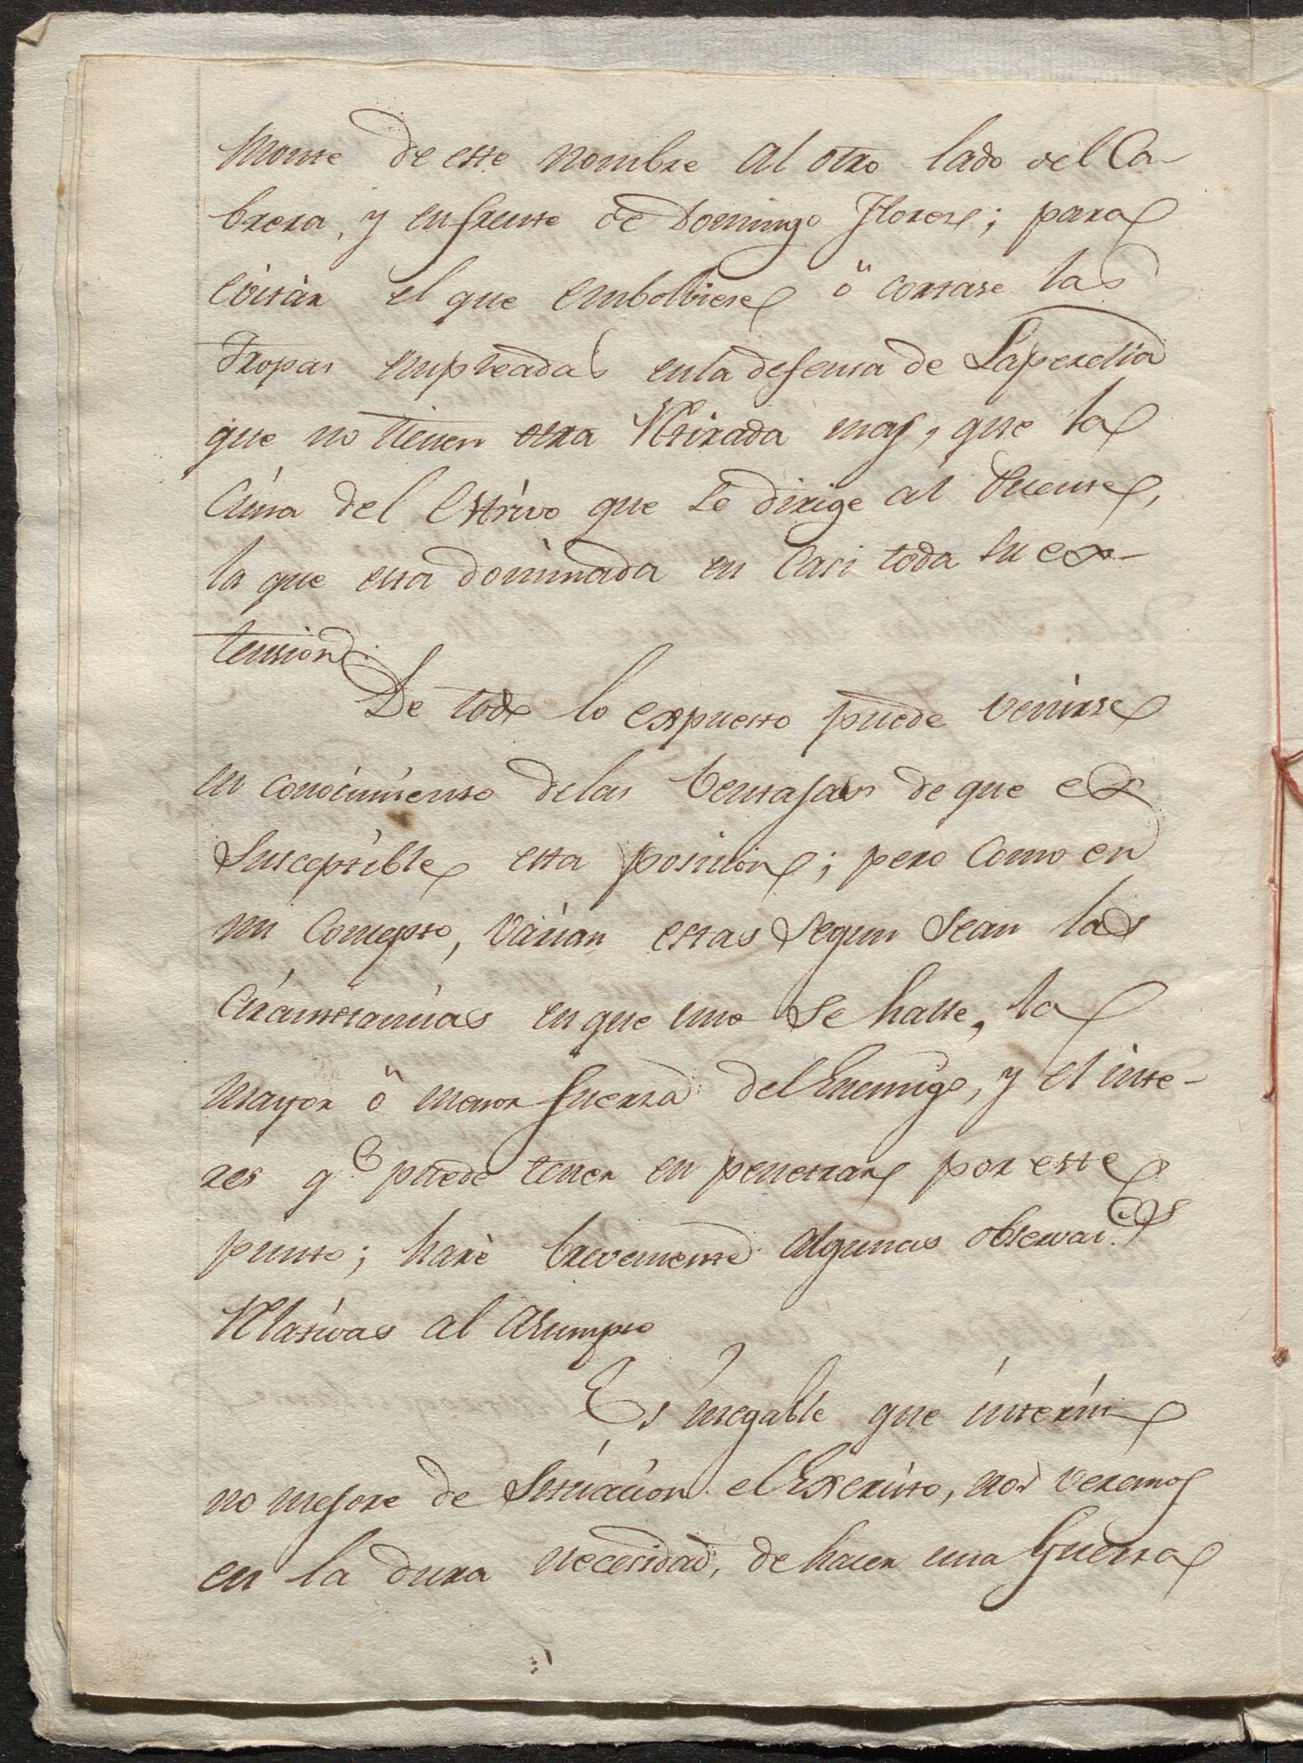 Monte de este nombre al otro lado del Ca-
brera, y enfrente de Domingo Flores; para
evitár el que embolviese ó cortase las
Tropas empleadas en la defensa de Laperelia
que no tienen otra Retirada mas, que la
Cima del Estrivo que se dirige al Puente,
la que esta dominada en Casi toda su ex-
tension.
De todo lo expuesto puede venirse
en conocimiento de las Ventajas de que es
Susceptible esta posicion; pero Como en
mi Concepto, várian estas segun sean las
Circunstancias en que uno se halle, la
mayor ó menor fuerza del Enemigo, y el inte-
res q.e puede tener en penetrar por este
punto; haré brevemente algunas observac.es
Relativas al Asumpto
Es inegable que interin
no mejore de Situacion el Exercito, nos veremos
en la dura necesidad, de hacer una Guerra